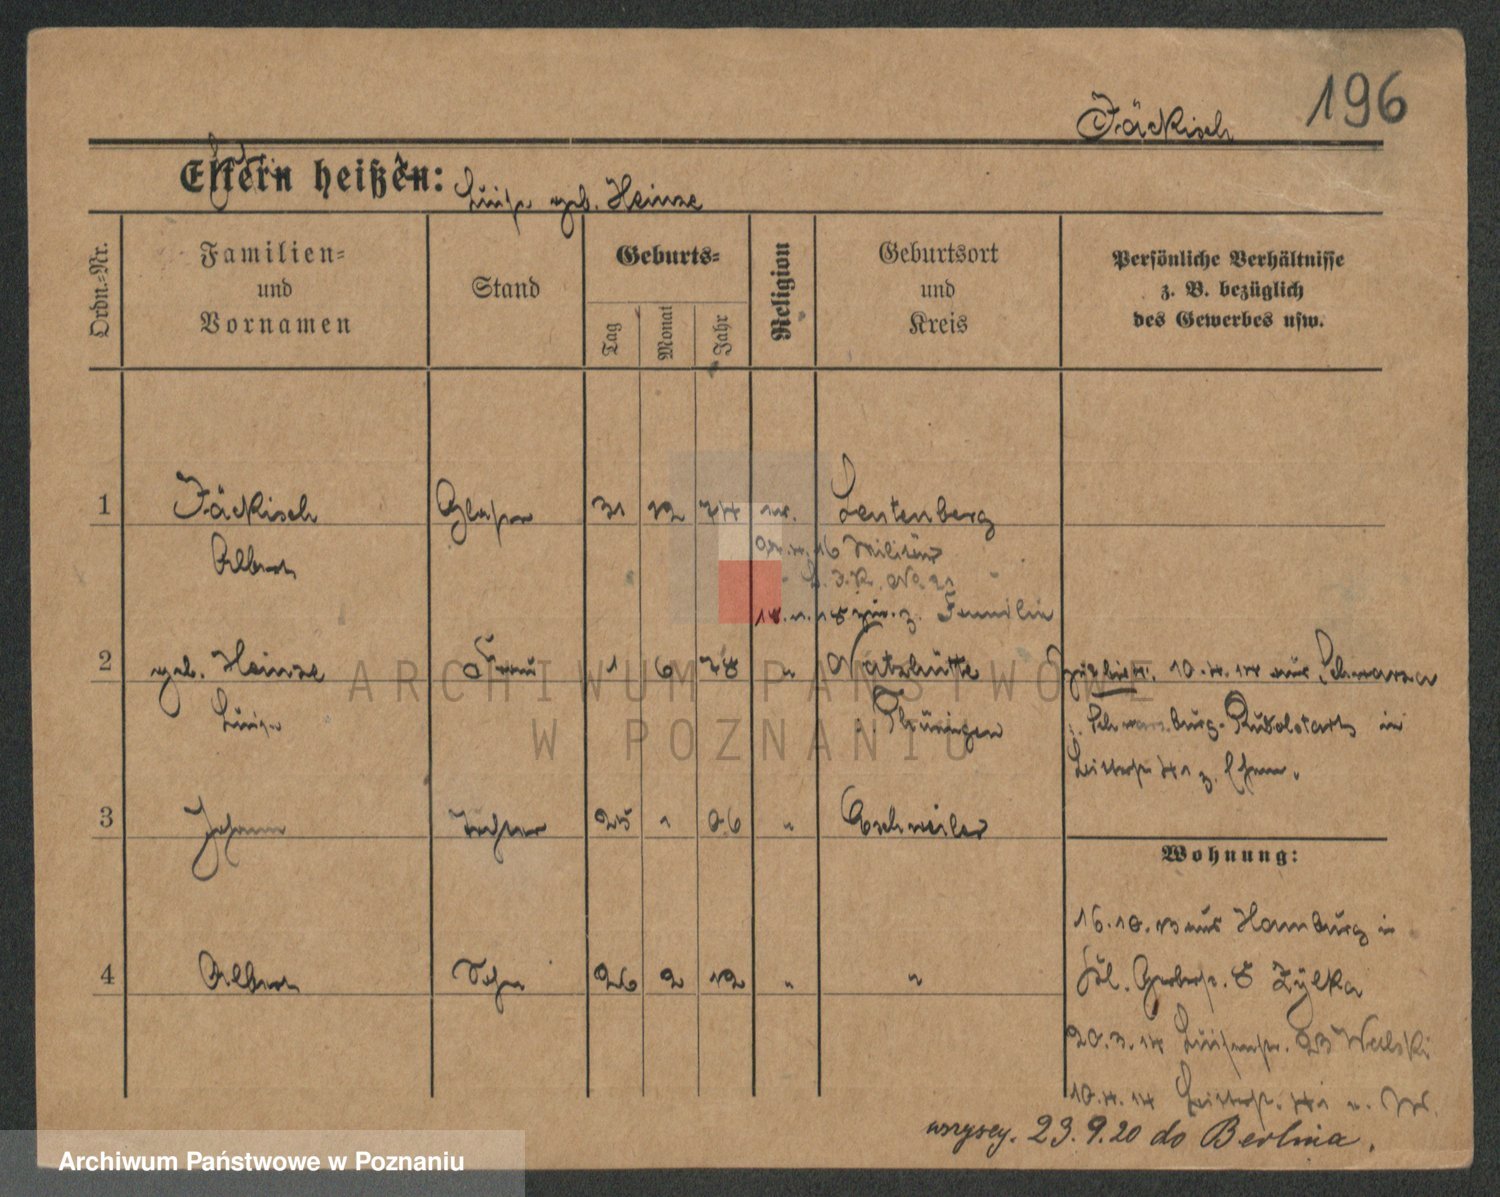 196
Jäckisch
Eltern heißen:
Luise geb. Heinze
Ordn.-Nr.
Familien-
und
Vornamen
Stand
Geburts-
Tag
Monat
Jahr
Religion
Geburtsort
und
Kreis
Persönliche Verhältnisse
z. B. bezüglich
des Gewerbes usw.
1 Jäckisch Glaser 31 12 74 Leutenberg
Albert
16 Militär
Familie
2 geb. Heinze Frau 1 6 78 " Katzhütte
Luise
Thüringen
10.4.14 aus Schwarza
Schwarzburg-Rudolstadt in
3 Johanna Tochter 25 1 06 " Eschweiler
Wohnung:
16.10.13 aus Hamburg in
4 Albert Sohn 26 2 12 " "
Gerberstr. 8 Zylka
20.3.14 Luisenstr. 23
10.4.14
wszyscy. 23.9.20 do Berlina.
ARCHIWUM PAŃSTWOWE
W POZNANIU
Archiwum Państwowe w Poznaniu